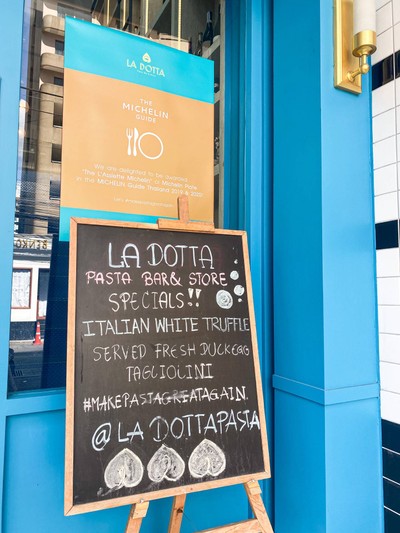 LA DOTTA
THE
MICHELIN
GUIDE
We are delighted to be awarded
"The L'Assiette Michelin" or Michelin Plate
in the MICHELIN Guide Thailand 2019 & 2020
LA DOTTA
PASTA BAR & STORE
SPECIALS!!
ITALIAN WHITE TRUFFLE
SERVED FRESH DUCK EGG
TAGLIOLINI
#MAKEPASTAGREATAGAIN.
@LADOTTAPASTA